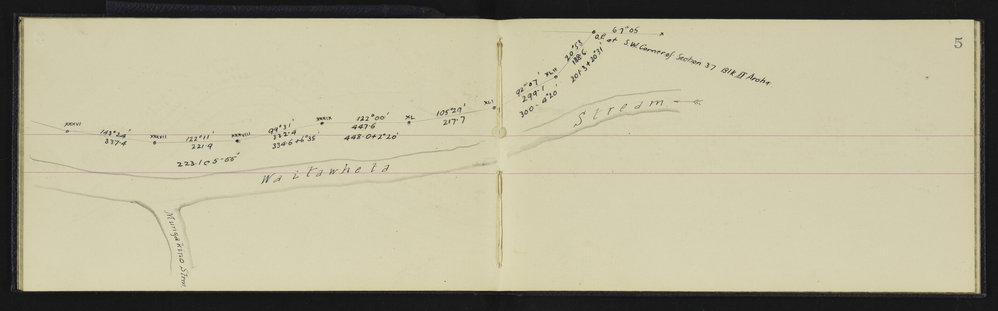 5
XXXVI
143°24'
337.4
XXXVII
122°11'
221.9
223.1 @ 5-55'
XXXVIII
99°31'
332.4
334.6+6°35'
XXXIX
122°00'
447.6
448.0+2°20'
XL
105°29'
217.7
XLI
92°07'
299.1
300-4°20'
XLII
20°53
188.6
201.3+20°31'
67°05
at S.W. Corner of Section 37 Blk II Aroha
Waitawheta Stream
Mungakino Strm